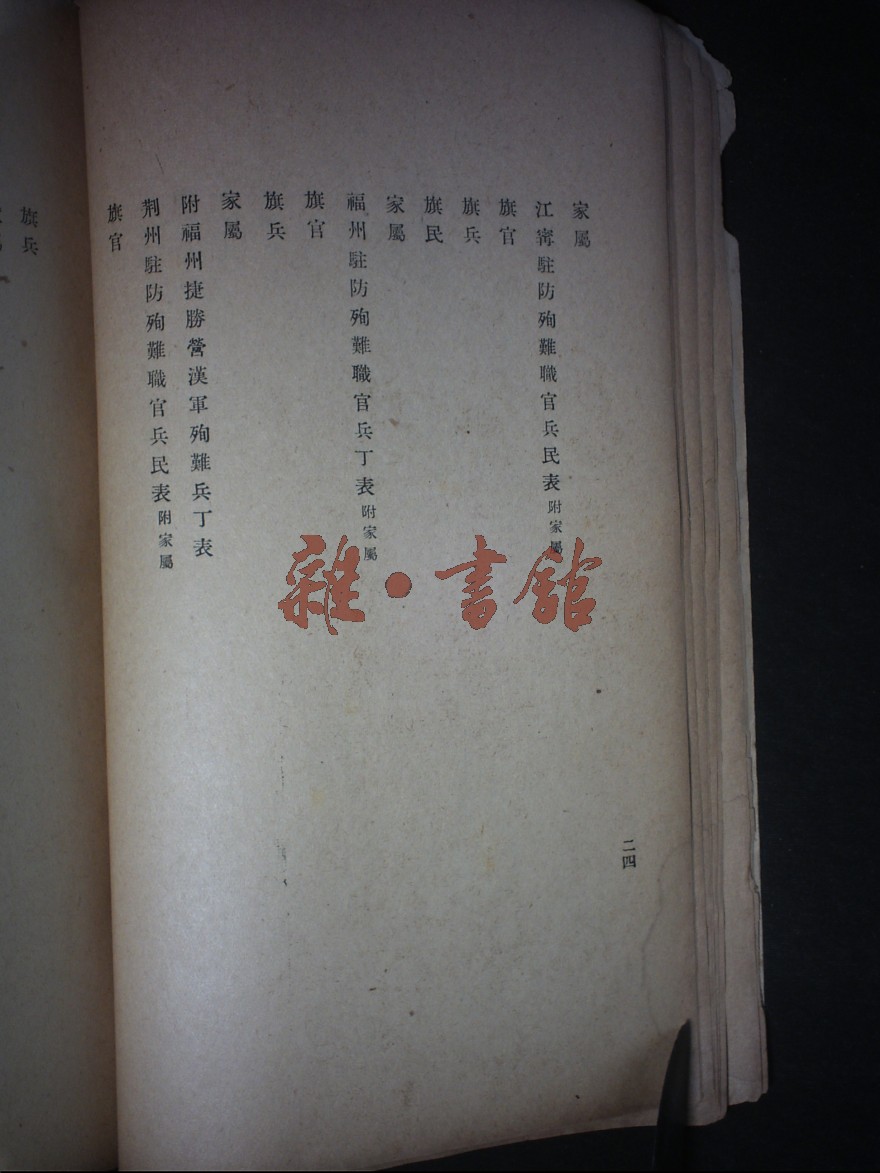 家屬
江寗駐防殉難職官兵民表附家屬
旗官
旗兵
旗民
家屬
福州駐防殉難職官兵丁表附家屬
旗官
旗兵
家屬
附福州捷勝營漢軍殉難兵丁表
荆州駐防殉難職官兵民表附家屬
旗官
旗兵
二四
雜·書館